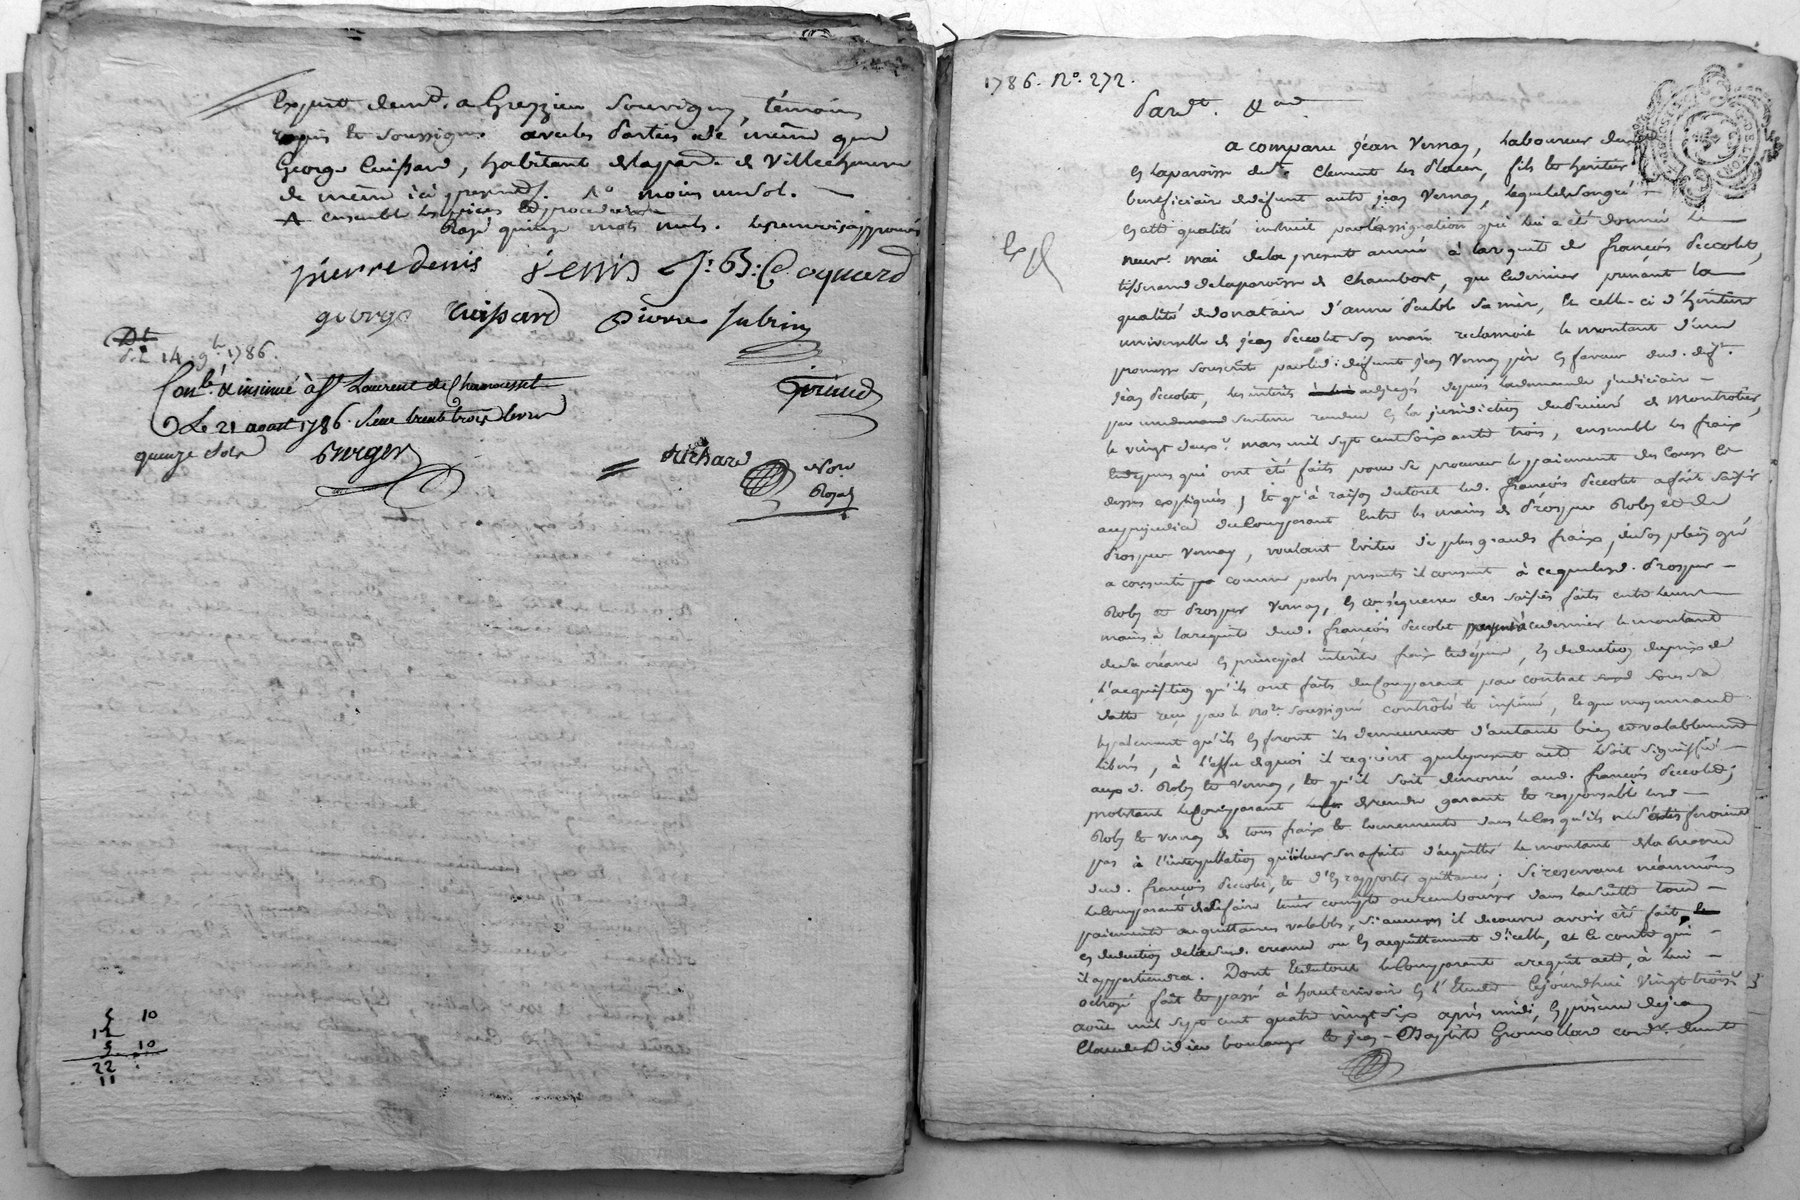 témoins
requis et soussignés avec les parties de même que
George Cuissard, habitant de la par. de Villechenève
de même ici présent. moins un sol.
ensemble les pièces et procédures
Rayé quinze mots nuls. les renvois approuvés
pierre denis denis J: B: Coquard
george cuissard pierre Jubin
d.t 14 9.bre 1786.
Conlé. & insinué à St Laurent de Chamousset
Giraud
Le 21 aoust 1786. Reçu trente trois livres
quinze sols Berger
Richard Nore
Royal
5 10
12
5 10
22
11
1786. N.o 272.
Pard.t
a comparu jean Vernay, laboureur de
la paroisse de St. Clement les Places, fils et héritier
bénéficiaire de défunt autre jean Vernay, lequel de son gré
en cette qualité instruit par l'assignation qui lui a été donnée le
neuf mai de la présente année à la requête de françois Peccolet,
tisserand de la paroisse de Chambost, que ce dernier prenant la
qualité de donataire d'anne Subtil sa mère, et celle-ci d'héritière
universelle de jean Peccolet son mari réclamoit le montant d'une
promesse souscrite par led. défunt jean Vernay père en faveur dud. déft.
jean Peccolet, les intérêts adjugés depuis la demande judiciaire
par une sentence rendue en la jurisdiction du Prieuré de Montrotier,
le vingt deux mars mil sept cent soixante trois, ensemble les fraix
et dépens qui ont été faits pour se procurer le paiement des causes ci
dessus expliquées, et qu'à raison du tout led. françois Peccolet a fait saisir
au préjudice du Comparant entre les mains de Prosper Roby et de
Prosper Vernay, voulant éviter de plus grands fraix, de son plein gré
a consenti comme par les présentes il consent à ce que lesd. Prosper
Roby et Prosper Vernay, en conséquence des saisies faites entre leurs
mains à la requête dud. françois Peccolet payent à ce dernier le montant
de sa créance en principal intérêts fraix et dépens, en déduction du prix de
l'acquisition qu'ils ont faite du Comparant par contrat sous sa
datte reçu par le No.re soussigné contrôlé et insinué, et que moyennant
le paiement qu'ils en feront ils demeurent d'autant bien et valablement
libérés, à l'effet de quoi il requiert que le présent acte soit signifié
aux d. Roby et Vernay, et qu'il soit dénoncé aud. françois Peccolet;
protestant le Comparant de rendre garant et responsable lesd.
Roby et Vernay de tous fraix et événements dans le cas qu'ils ne déféreroient
pas à l'interpellation qui leur sera faite d'acquitter le montant de la créance
dud. françois Peccolet, et d'en rapporter quittance; se réservant néanmoins
le Comparant de se faire tenir compte ou rembourser dans la suite tous
paiements ou quittances valables, si aucuns il découvre avoir été faits
en déduction de lad. créance ou en acquittement d'icelle, et ce contre qui
il appartiendra. Dont et du tout le Comparant a requis acte, à lui
octroyé fait et passé à hauterivoire en l'Etude cejourd'hui vingt trois
août mil sept cent quatre vingt six après midi, en présence de jean
Claude Didier boulanger et jean-Baptiste Gromollard cord.r